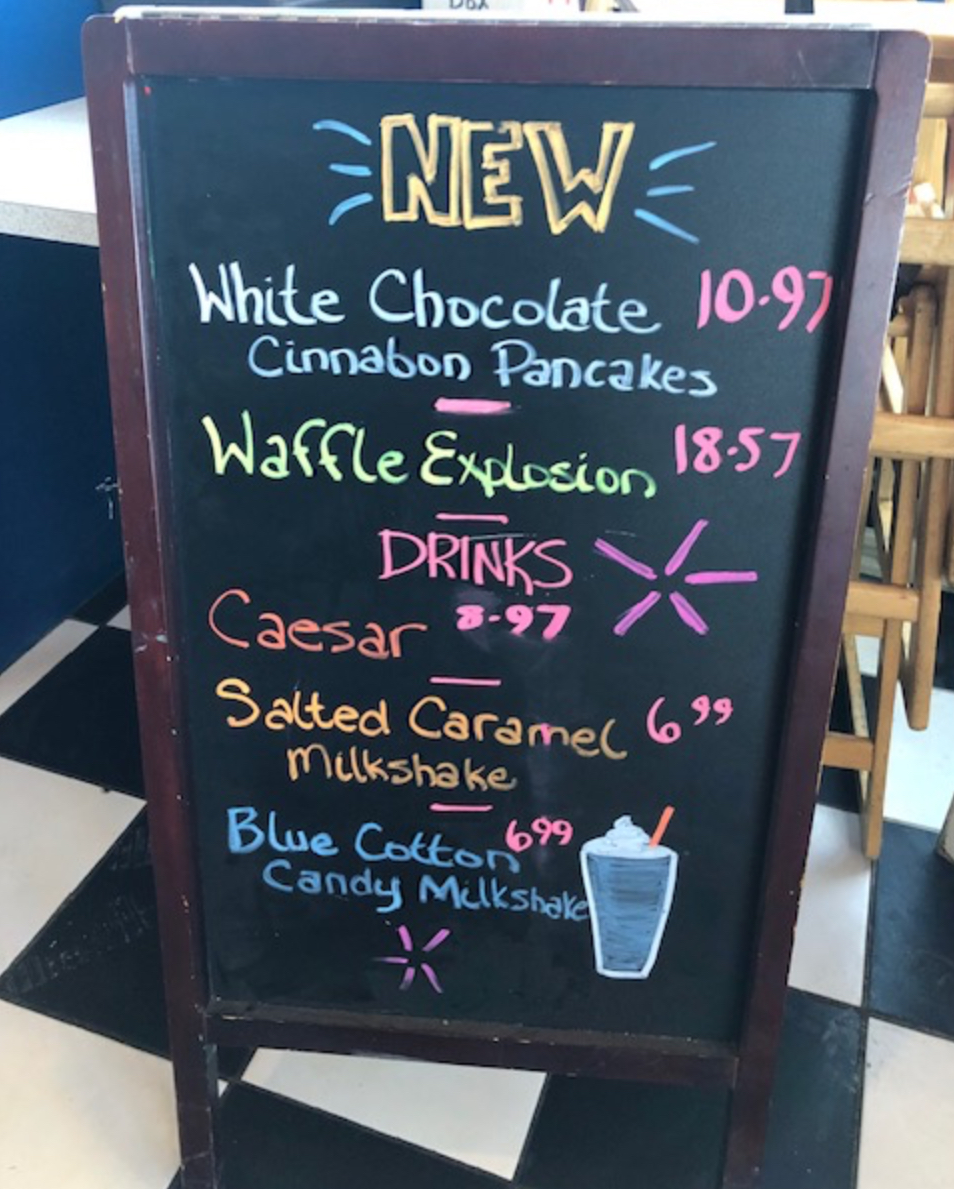 NEW
White Chocolate 10.97
Cinnabon Pancakes
Waffle Explosion 18.57
DRINKS
Caesar 8.97
Salted Caramel 6 99
Milkshake
Blue Cotton 6 99
Candy Milkshake